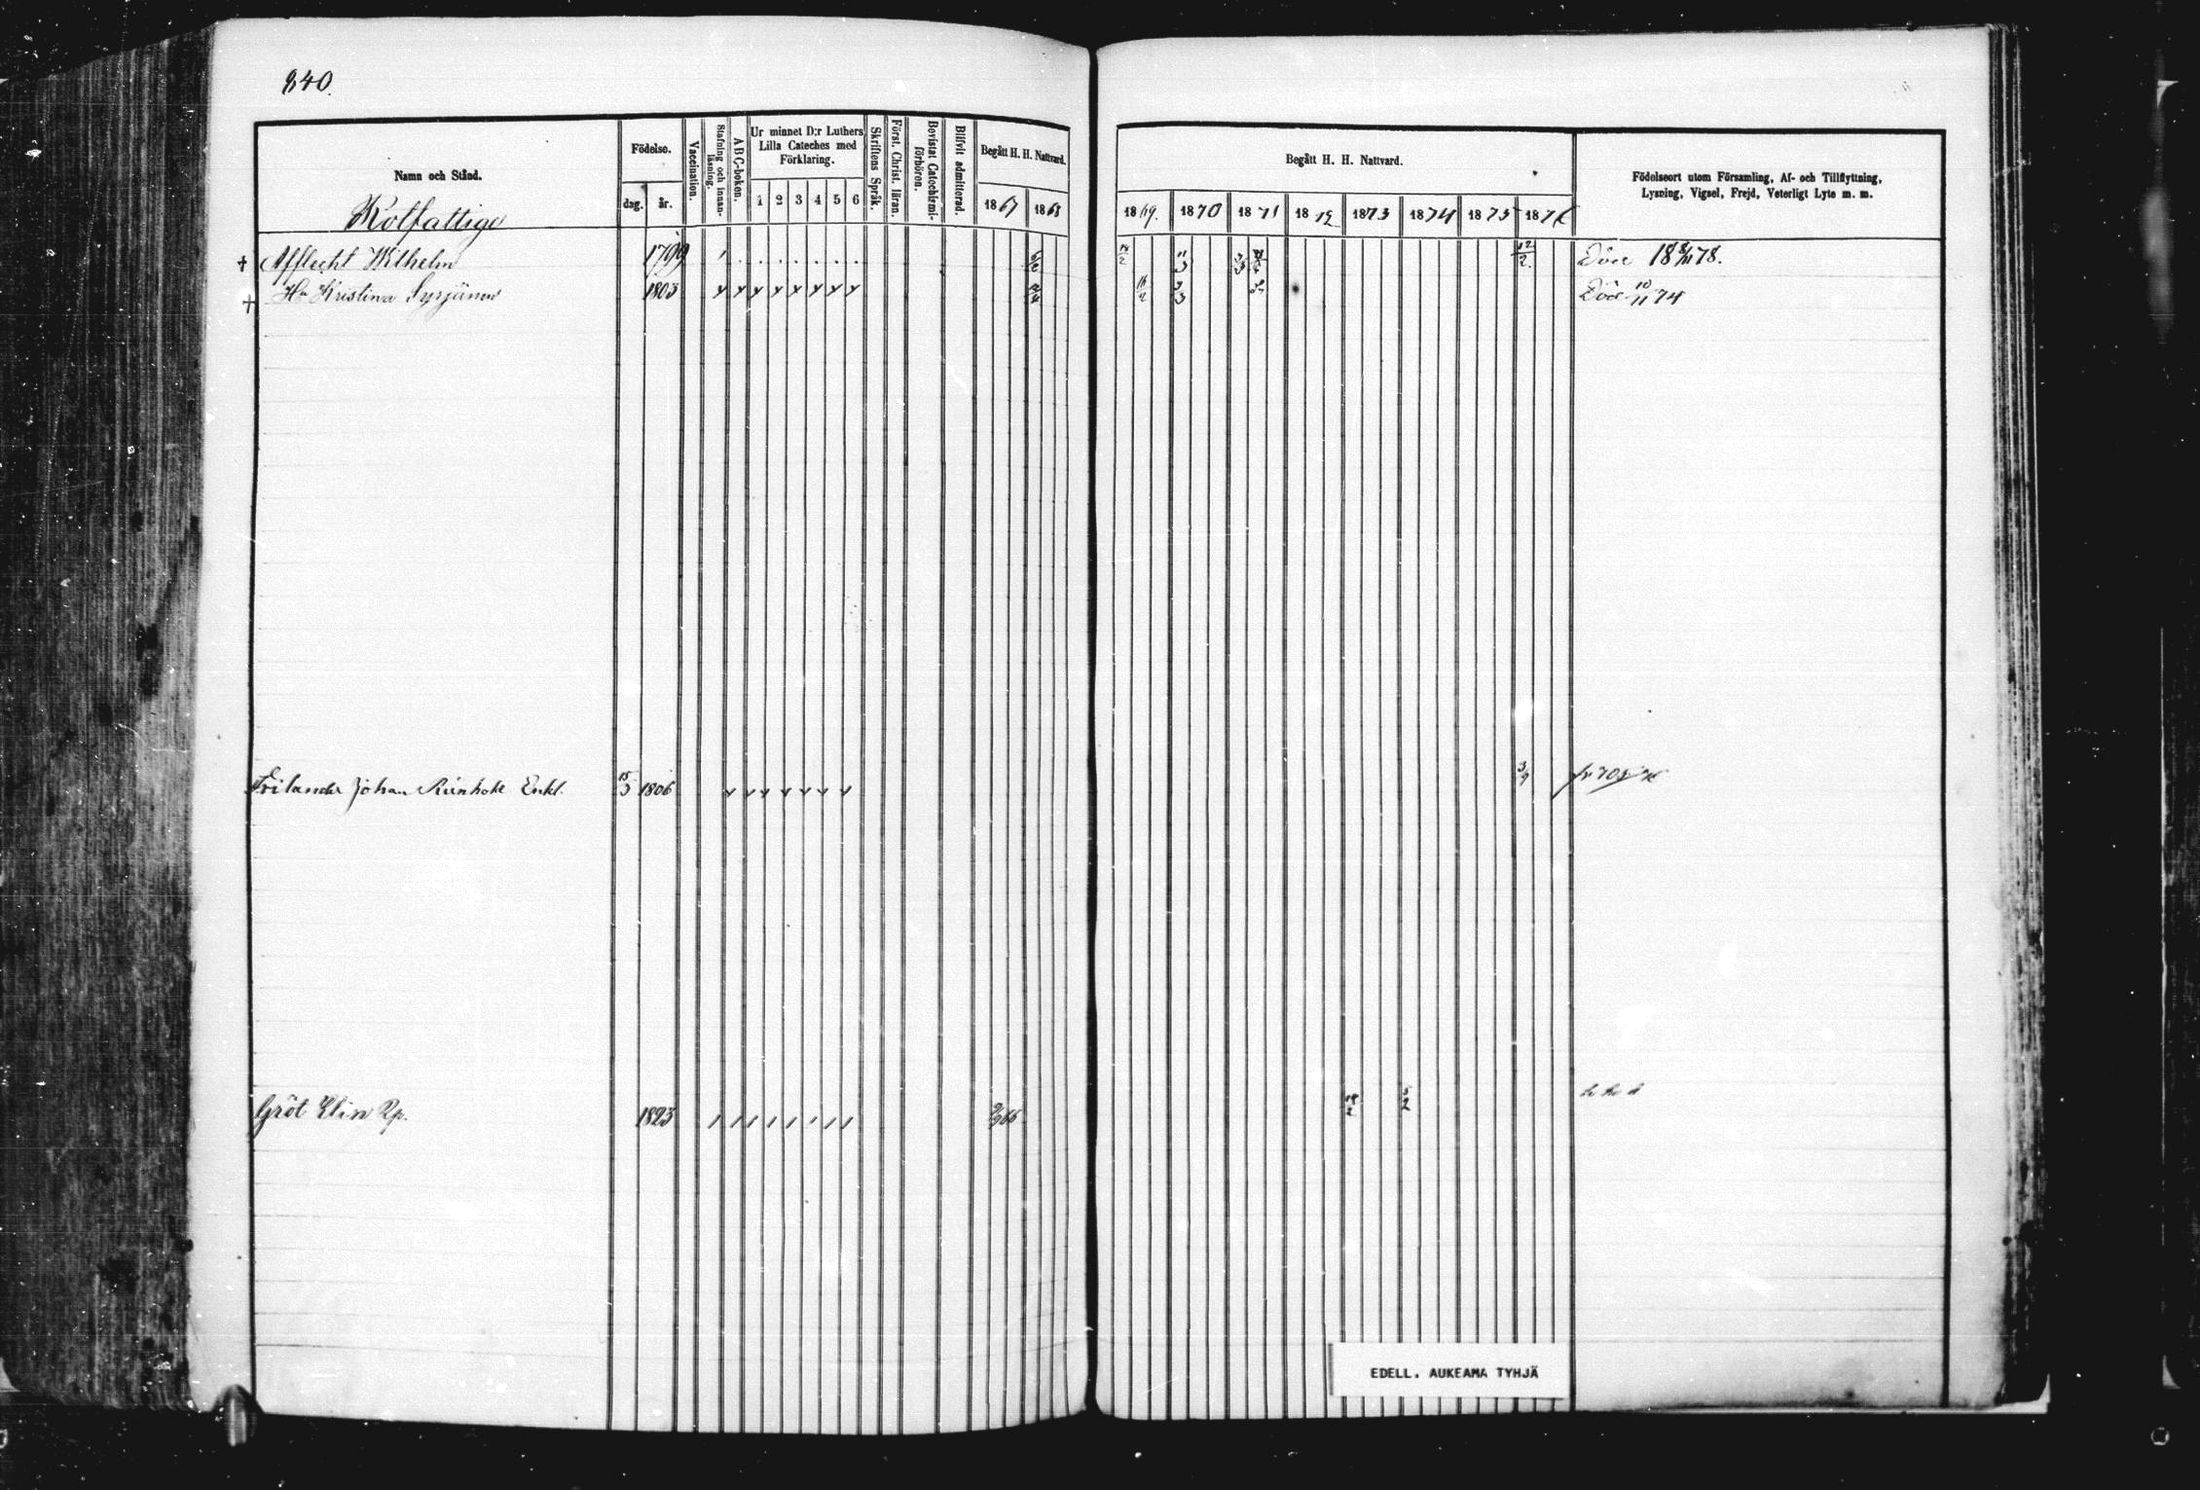 840.
Namn och Stånd.
Rotfattige
Födelse.
dag. år.
Vaccination.
Stafning och innan-läsning.
ABC-boken.
Ur minnet D:r Luthers
Lilla Cateches med
Förklaring.
1 2 3 4 5 6
Skriftens Språk.
Först. Christ. läran.
Bevistat Catechismi-förhören.
Blifvit admitterad.
Begått H. H. Nattvard.
1867 1868
Begått H. H. Nattvard.
1869. 1870 1871 1872 1873 1874 1875 1876
Födelseort utom Församling, Af- och Tillflyttning,
Lysning, Vigsel, Frejd, Veterligt Lyte m. m.
+ Afflecht Wilhelm 1799 12/2 Död 18 8/11 78.
+ Hu Kristina Syrjänen 1803 3/3 Död 10/11 74
Frilander Johan Reinhold Enkl. 15/3 1806 3/9
Gröt Elin Rp. 1823 9/9 66 5/2
EDELL. AUKEAMA TYHJÄ